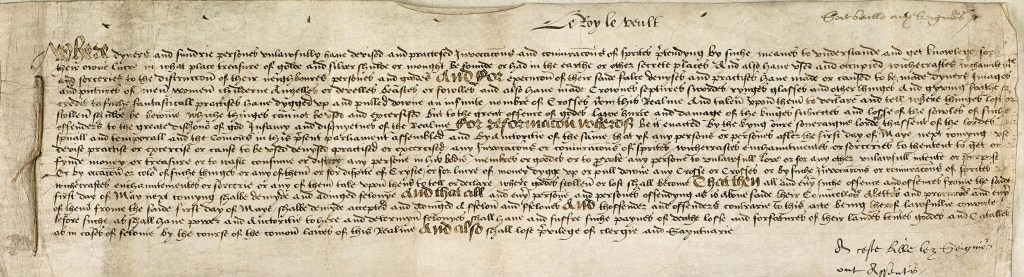 Le Roy le veult
Soit baille aux Seigneurs
Where dyvers and sundrie persones unlawfully have devised and practised Invocacions and conjuracions of Sprites p'tendyng by suche meanes to understande and get knowlege for
their owne lucre in what place treasure of golde and silver shulde or mought be founde or had in the earthe or other secrete places And also have used and occupied withecrafts inchauntmentes
and sorceries to the distruccion of their neighbours persones and goodes And for execucion of their saide falce devyses and practises have made or caused to be made dyvers Images
and pictures of men women childerne Angelles or develles beastes or fowles and also have made Crownes Septures Swordes rynges glasses and other thinges And gyving faithe &
credit to suche fantasticall practises have dygged up and pulled downe an infinite nombre of Crosses wthin this Realme And taken upon them to declare and tell where thinges lost or
stollen shulde be become whiche thinges cannot be used and excersised but to the great offence of godes lawe hurte and damage of the Kinges Subiectes and losse of the sowles of suche
offenders to the greate dishonor of god Infamy and disquyetnes of the Realme For Reformacion wherof Be it enacted by the kyng oure Soveraigne lorde thassent of the lordes
spirituall and temporall and the Comons in this present parliament assembled and by auctoritie of the same that yf any persone or persones after the first day of Maye next comyng use
devise practise or exercise or cause to be used devysed practised or exercised any Invocacions or conjuracions of Sprites witchecraftes enchauntmentes or sorceries to thentent to get or
fynde money or treasure or to waste consume or distroy any persone in his bodie membres or goodes or to provoke any persone to unlawfull love or for any other unlawfull intente or purpose
Or by occacion or color of suche thinges or any of them or for dispite of Cryste or for lucre of money dygge up or pull downe any Crosse or Crosses or by suche Invocacions or conjuracions of Sprites
witchecraftes enchauntementes or sorcerie or any of them take upon them to tell or declare where goodes stollen or lost shall become That then all and every suche offence and offences frome the saide
first day of May next comyng shalbe demyde and adjudged felonye And that all and every persone and persones offendyng as is above saide their Councellors Abettors and procurors and every
of them frome the saide first day of Maye shalbe demyde accepted and adjudged A felon and felones And thoffender and offenders contrarie to this acte being therof lawfullie convicte
before suche as shall have power and Auctoritie to here and determyn felonyes shall have and suffre suche paynes of deathe losse and forfaitures of their landes tentes goodes and Catalles
as in cases of felonie by the course of the comon lawes of this Realme And also shall lose privilege of clergie and Sayntuarie
A ceste Bille lez Seigneurs
ont Assentus